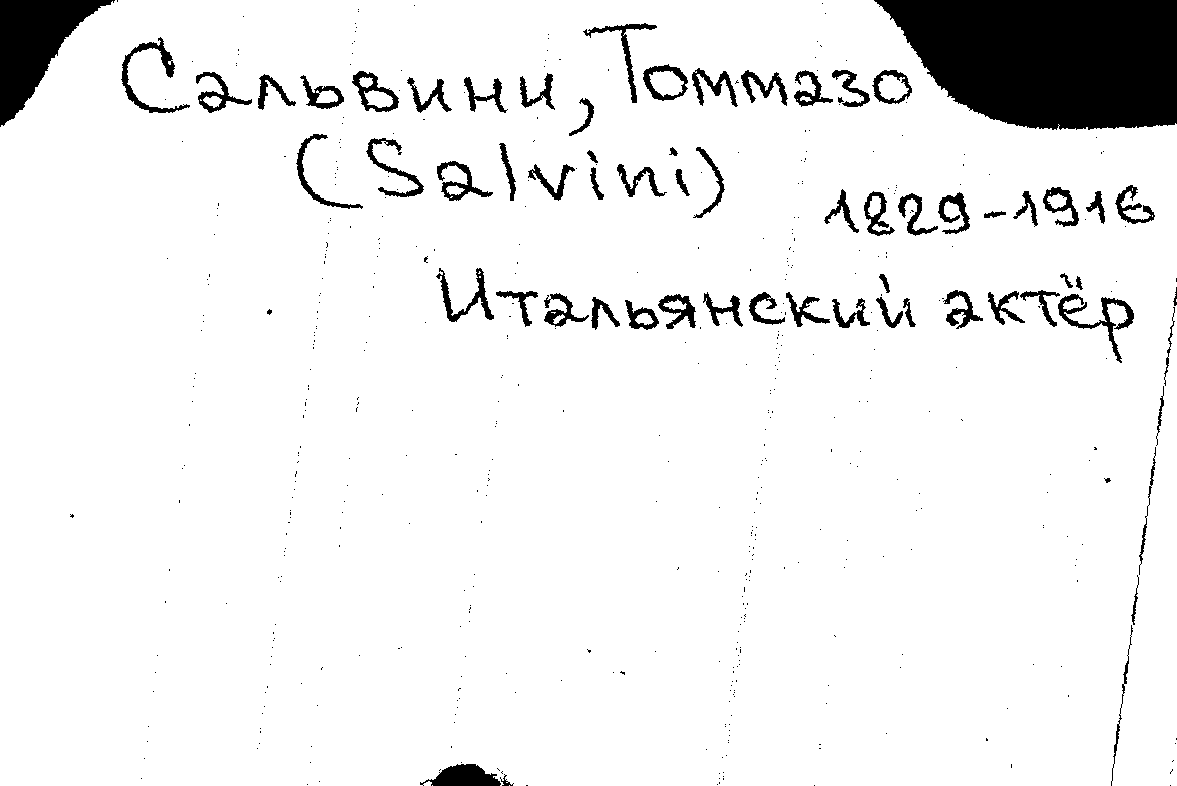 Сальвини, Томмазо
(Salvini)
1829-1916
Итальянский актёр